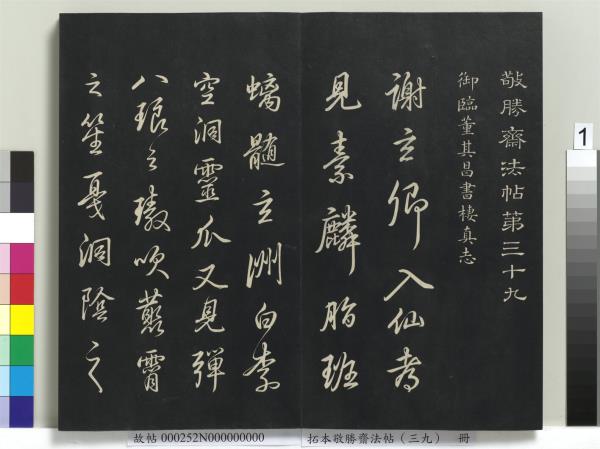 敬勝齋法帖第三十九
御臨董其昌書棲真志
謝玄卿入仙者
見素麟脂班
螭髓玄洲白柰
空洞靈瓜又見彈
八琅之璈吹叢霄
之笙戛洞陰之
1
故帖 000252N000000000
拓本敬勝齋法帖(三九) 冊